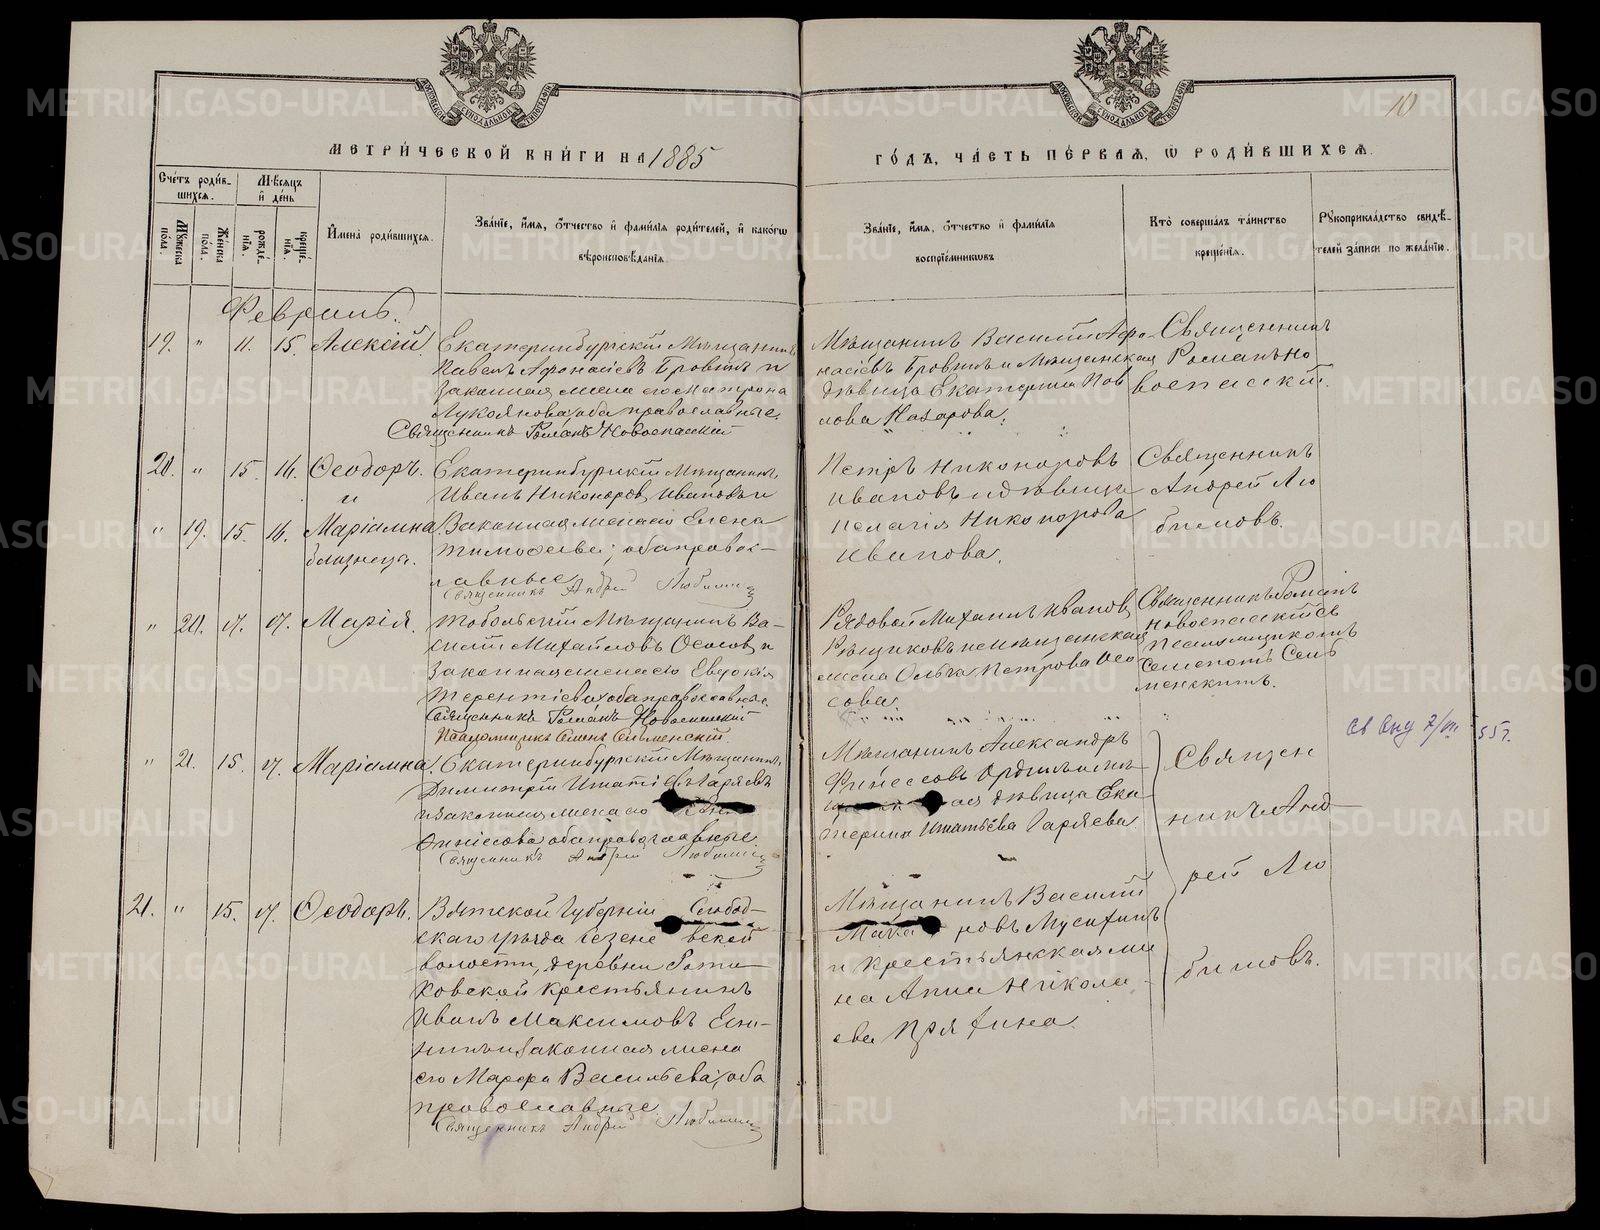 МЕТРИ́ЧЕСКОЙ КНИ́ГИ НА 1885
ГО́ДЪ, ЧА́СТЬ ПЕ́РВАЯ, Ѡ РОДИ́ВШИХСЯ.
10
Сче́тъ роди́в-
шихся.
Му́жеска по́ла.
Же́нска по́ла.
Мѣ́сяцъ и де́нь
рожде́-
нїя.
креще́-
нїя.
И҆мена̀ роди́вшихся.
Зва́нїе, и҆́мя, ѻ҆́тчество и҆ фами́лїя роди́телей, и҆ како́гѡ
вѣроисповѣ́данїя.
Зва́нїе, и҆́мя, ѻ҆́тчество и҆ фами́лїя
воспрїе́мниковъ
Кто̀ соверша́лъ та́инство
креще́нїя.
Рꙋкоприкла́дство свидѣ́-
телей за́писи по жела́нїю.
Февраль.
19. " 11. 15. Алексій.
Екатеринбургскій Мѣщанинъ
Павелъ Афонасіевъ Бровинъ и
Законная жена его Матрона
Лукоянова, оба православные.
Священникъ Романъ Новоспасскій
Мѣщанинъ Василій Афо-
насіевъ Бровинъ и Мѣщанская
дѣвица Екатерина Пав
лова Назарова.
Священникъ
Романъ Но
воспасскій.
20. " 15. 16. Ѳеодоръ.
и
" 19. 15. 16. Маріамна
близнецы.
Екатеринбургскій Мѣщанинъ,
Иванъ Никоноровъ Ивановъ и
Законная жена его Елена
Тимофеева, оба правос-
лавные
Священникъ Андрей Любимовъ
Петръ Никоноровъ
Ивановъ и дѣвица
Пелагія Никонорова
Иванова.
Священникъ
Андрей Лю
бимовъ.
" 20. 17. 17. Марія.
Тобольскій Мѣщанинъ Ва-
силій Михайловъ Ососовъ и
Законная жена его Евдокія
Терентіева, оба православные.
Священникъ Романъ Новоспасскій
Псаломщикъ Семенъ
Рядовой Михаилъ Ивановъ
и мѣщанская
жена Ольга Петрова Осо
сова.
Священникъ Романъ
Новоспасскій съ
Псаломщикомъ
Семеномъ
" 21. 15. 17. Маріамна.
Екатеринбургскій Мѣщанинъ,
Димитрій Игнатіевъ Гаряевъ
и Законная жена его
оба православные
Священникъ Андрей Любимовъ
Мѣщанинъ Александръ
дѣвица Ека
терина Игнатьева Гаряева.
Священ
никъ Анд
рей Лю
бимовъ.
21. " 15. 17. Ѳеодоръ.
Вятской Губерніи Слобод-
скаго уѣзда
волости, деревни
Крестьянинъ
Иванъ Максимовъ
и Законная жена
его Марфа Васильева, оба
православные
Священникъ Андрей Любимовъ
Мѣщанинъ Василій
Мака ровъ Мусихинъ
и Крестьянская же
на Анна Никола
ева